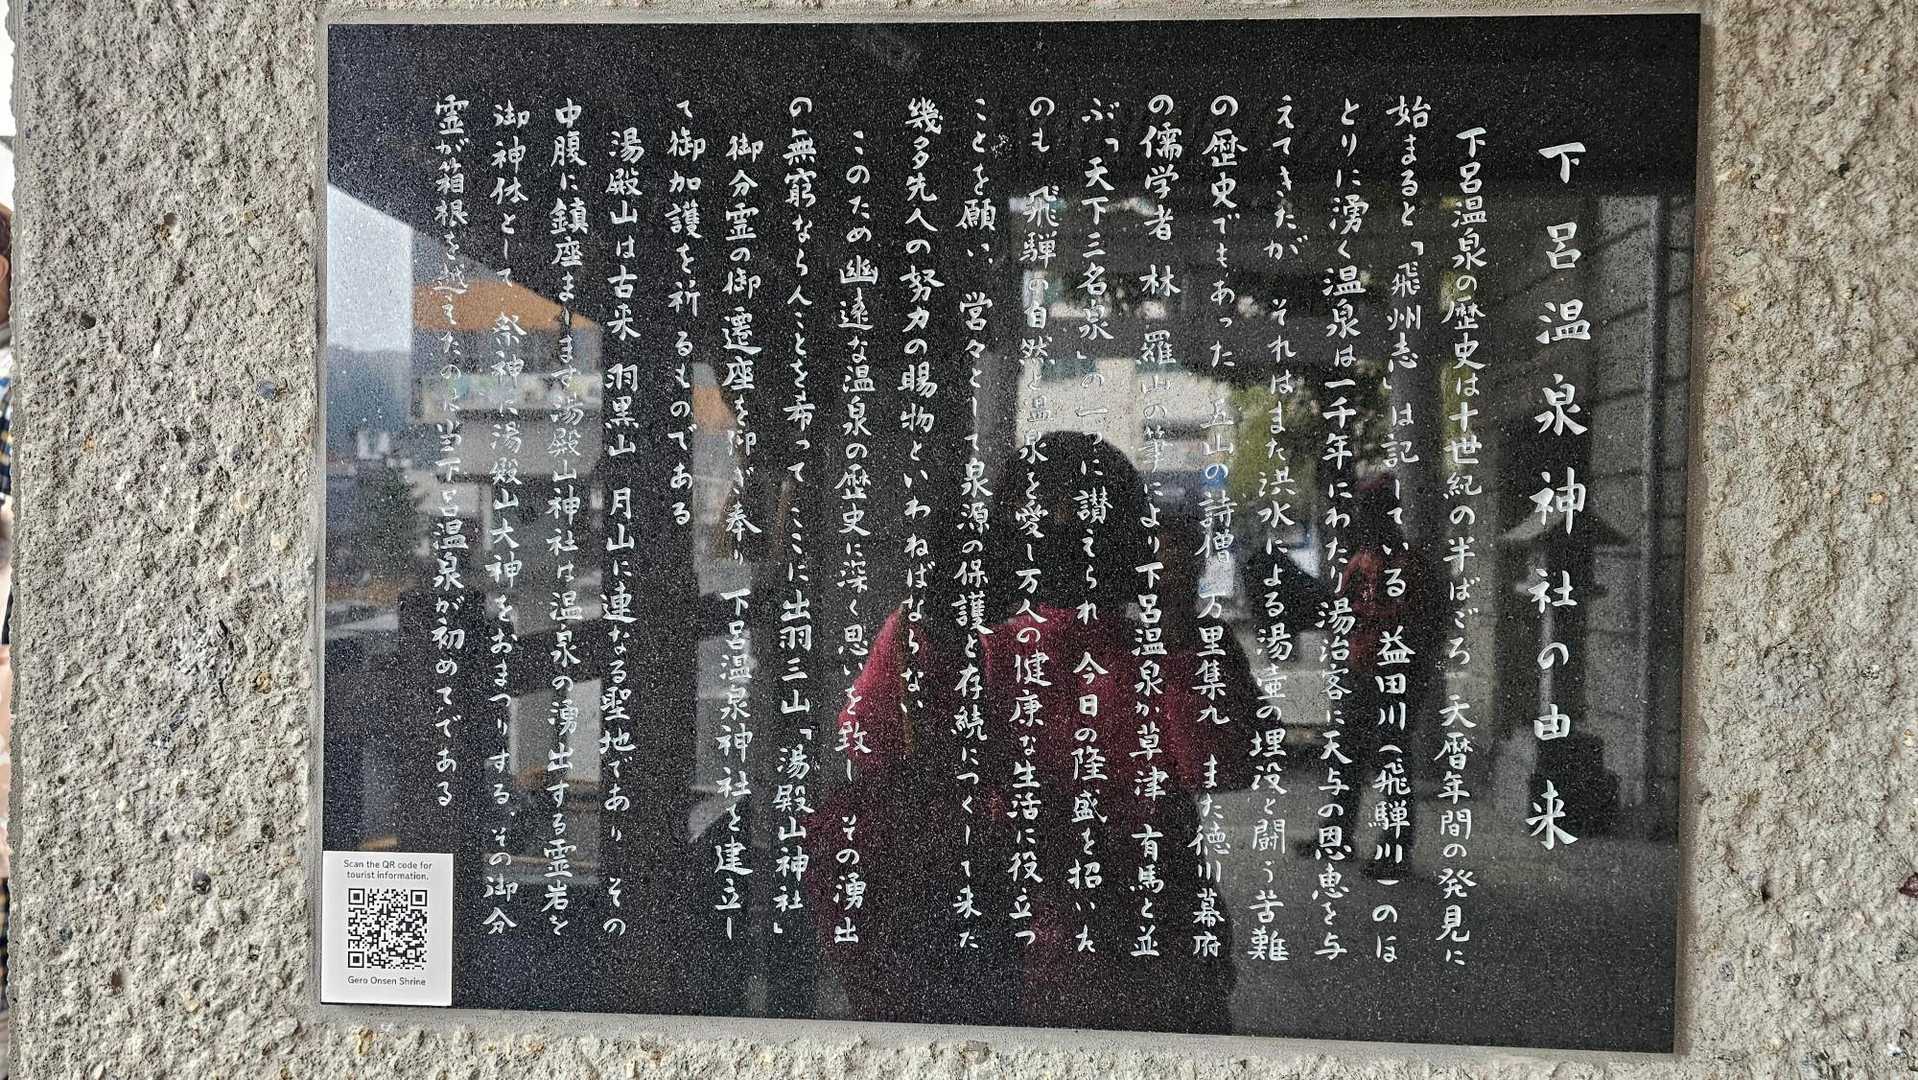 下呂温泉神社の由来
下呂温泉の歴史は十世紀の半ばごろ 天暦年間の発見に
始まると「飛州志」は記している 益田川(飛騨川)のほ
とりに湧く温泉は一千年にわたり湯治客に天与の恩恵を与
えてきたが それはまた洪水による湯壷の埋没と闘う苦難
の歴史でもあった 五山の詩僧 万里集九 また徳川幕府
の儒学者 林 羅山の筆により下呂温泉が草津 有馬と並
ぶ「天下三名泉」の一つに讃えられ 今日の隆盛を招いた
のも 飛騨の自然と温泉を愛し万人の健康な生活に役立つ
ことを願い 営々として泉源の保護と存続につくして来た
幾多先人の努力の賜物といわねばならない
このため幽遠な温泉の歴史に深く思いを致し その湧出
の無窮ならんことを希って ここに出羽三山「湯殿山神社」
御分霊の御遷座を仰ぎ奉り 下呂温泉神社を建立し
て御加護を祈るものである
湯殿山は古来 羽黒山 月山に連なる聖地であり その
中腹に鎮座まします湯殿山神社は温泉の湧出する霊岩を
御神体として 祭神に湯殿山大神をおまつりする。その御分
霊が箱根を越えたのは当下呂温泉が初めてである
Scan the QR code for
tourist information.
Gero Onsen Shrine